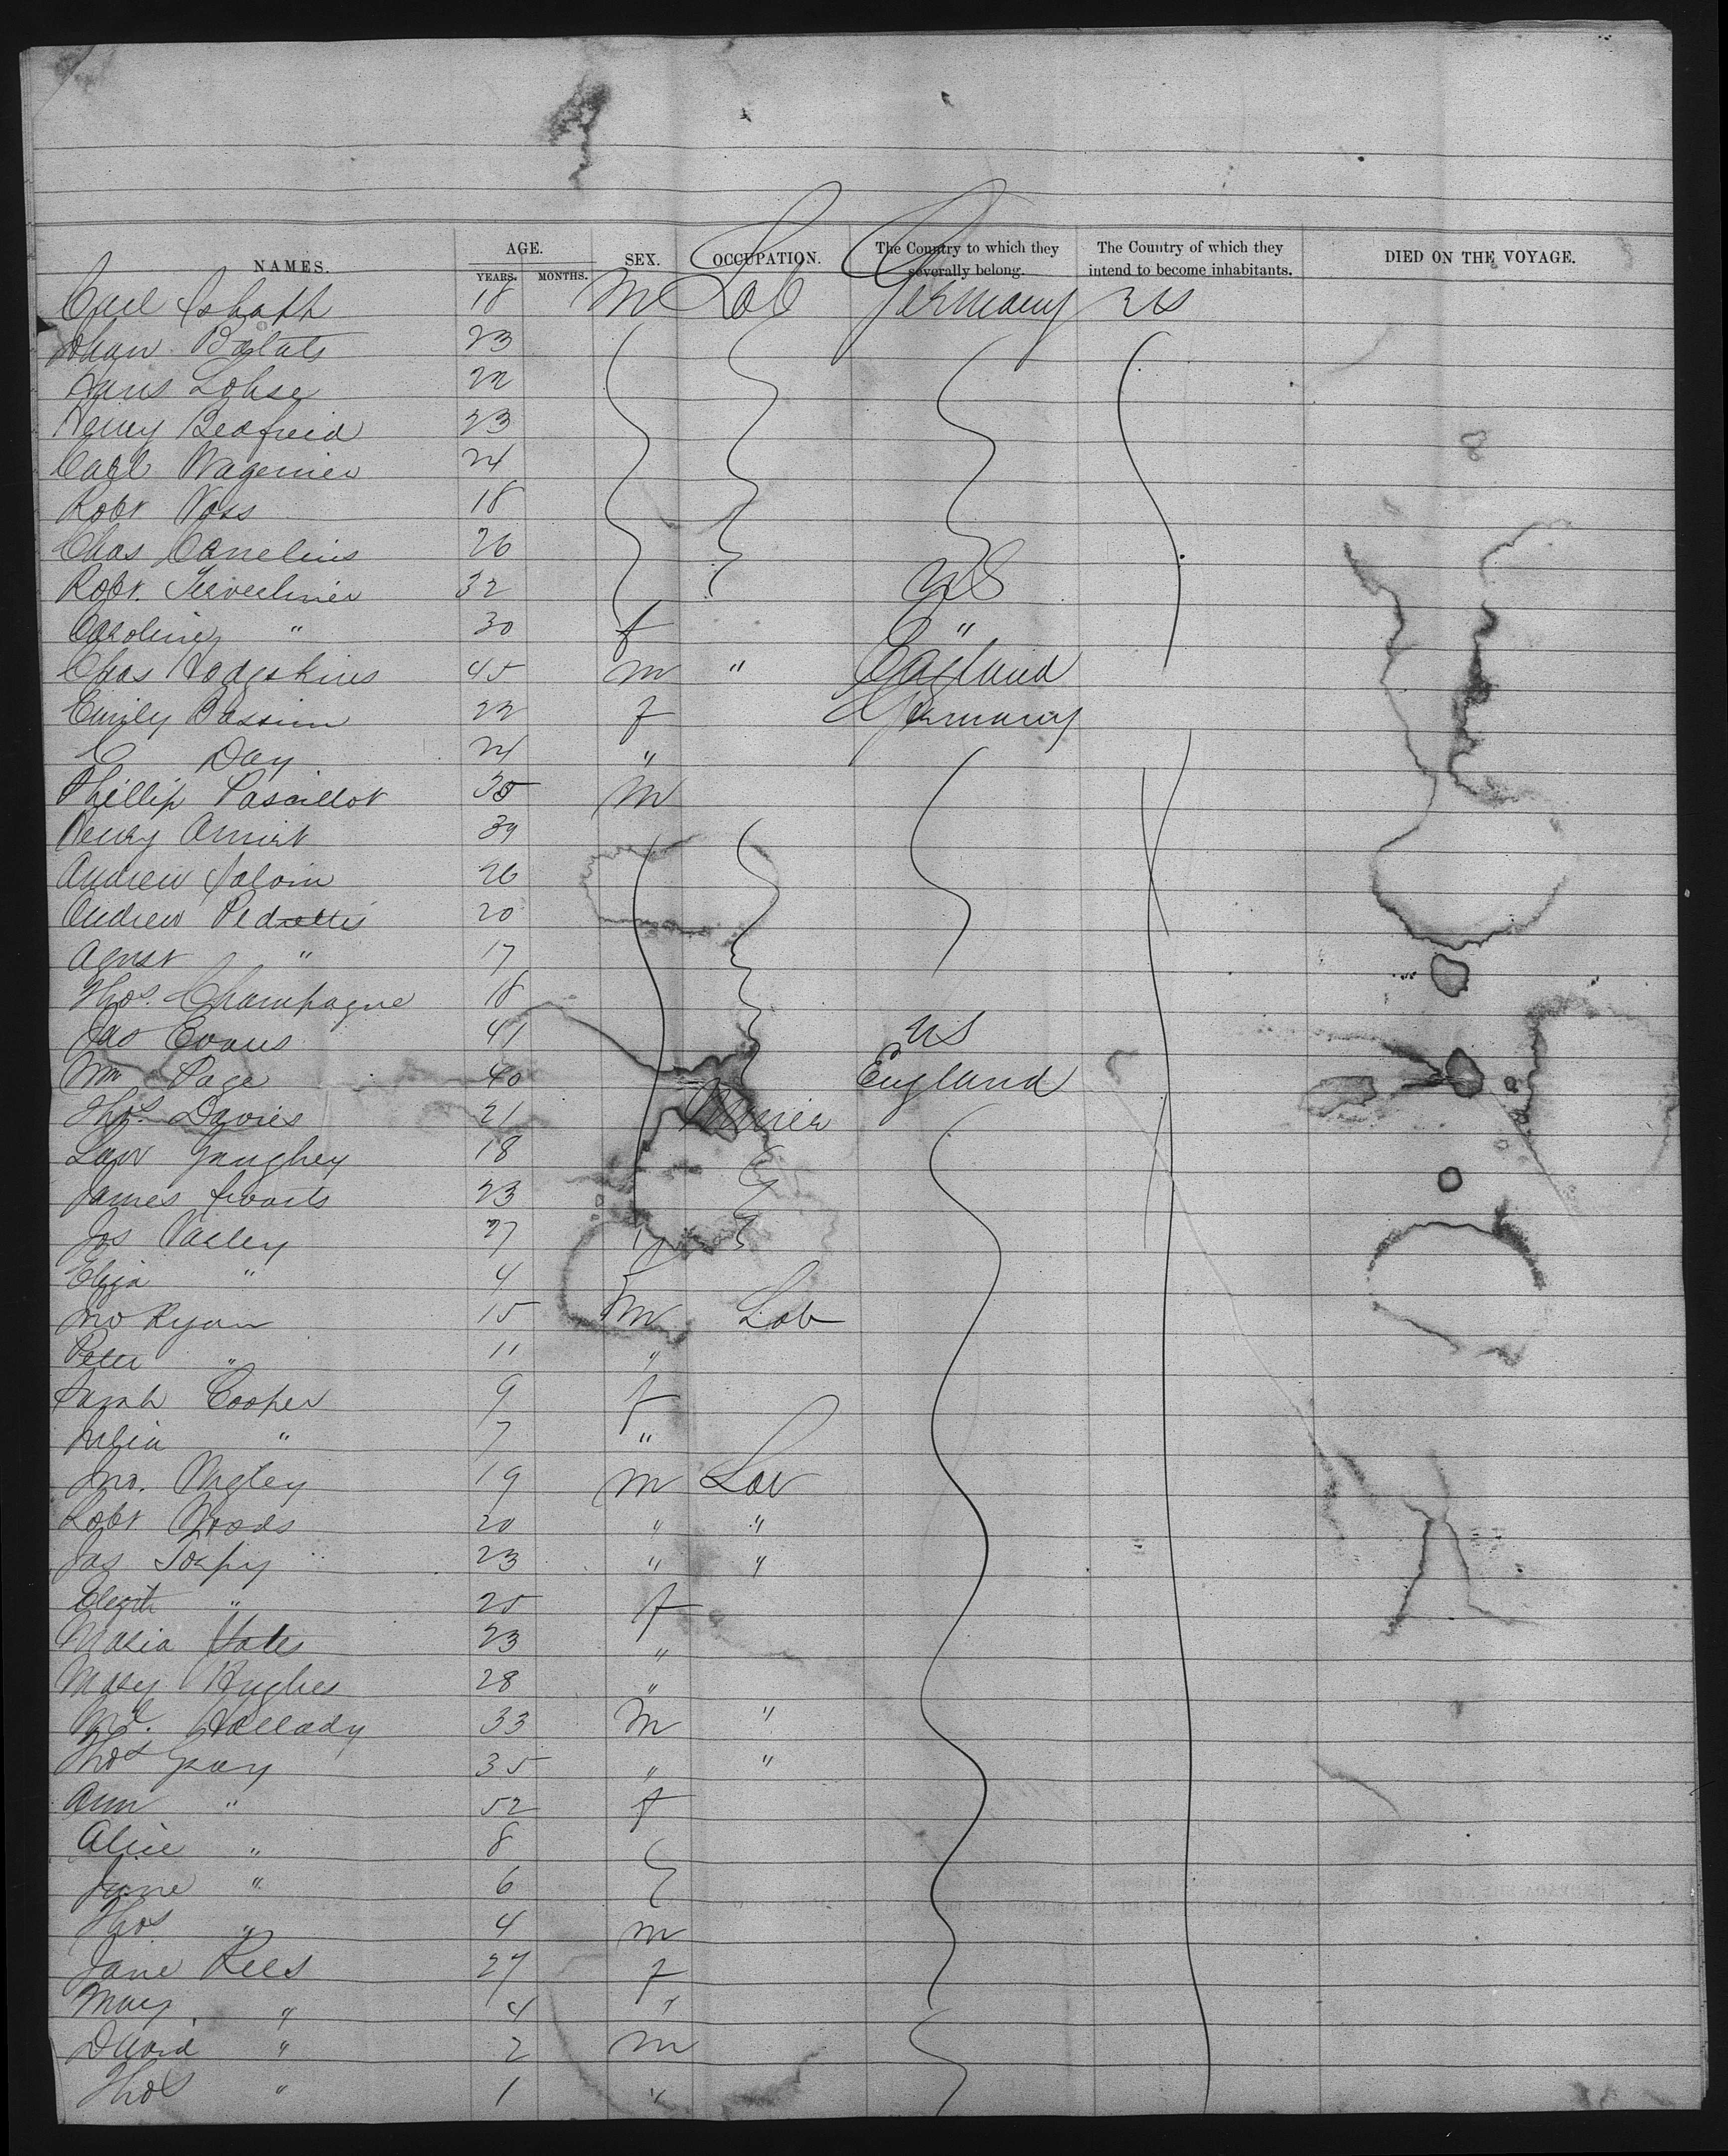 NAMES. AGE. SEX. OCCUPATION. The Country to which they severally belong. The Country of which they intend to become inhabitants. DIED ON THE VOYAGE.
YEARS. MONTHS.
18 M Lab Germany US
Johan 23
Hans Lohse 22
Henry 23
Carl 24
Robt Voss 18
Chas Cornelius 26
Robt. 32 US
Caroline " 30 f "
Chas Hodgskins 45 m " England
Emily Bassim 22 f Germany
C Day 24 "
Phillip 35 M
Henry 39
Andrew Salvin 26
Andrew Pedrettis 20
Agust " 17
Thos. Champagne 18
Jas Evans 41 US
Wm Page 40 England
Thos. Davies 21 Miner
Law Gaughey 18
James Swaits 23
Jos Varley 27
Eliza " 4 f
Jno Ryan 15 m Lab
Peter " 11 "
Sarah Cooper 9 f
Julia " 7 "
Jno. 19 m Lab
Robt Woods 20 " "
Jas 23 " "
Elizth " 25 f
Maria Yates 23 "
Mary Hughes 28 "
Ml. Hallady 33 M "
Thos Gray 35 " "
Ann " 52 f
Alice " 8
Jane " 6
Thos " 4 m
Jane Rees 27 f
Mary " 4 "
David " 2 m
Thos " 1 "